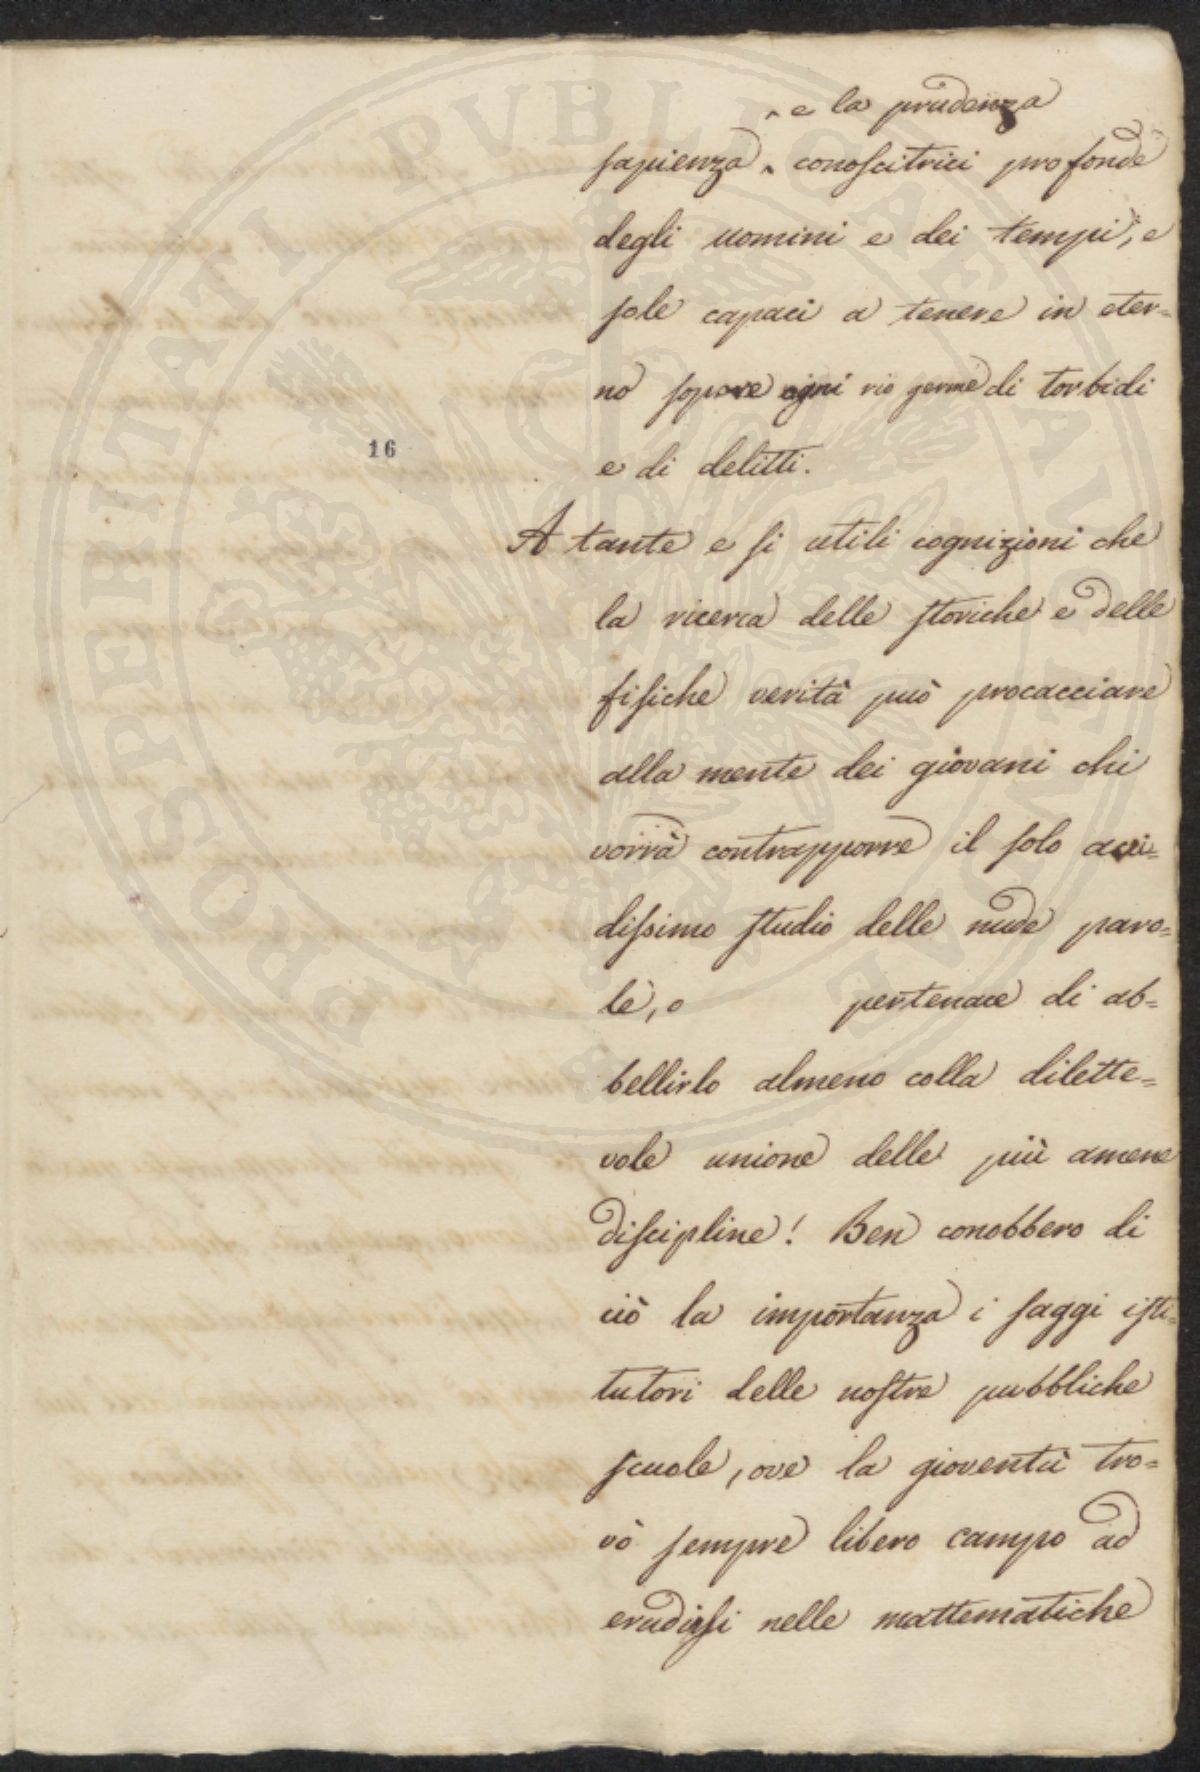 ^ e la prudenza
sapienza ^ conoscitrici profonde
degli uomini e dei tempi, e
sole capaci a tenere in eter=
no sopore ogni rio germe di torbidi
16
e di delitti.
A tante e si utili cognizioni che
la ricerca delle storiche e delle
fisiche verità può procacciare
alla mente dei giovani chi
vorrà contrapporre il solo
dissimo studio delle nude paro=
le, o pertenace di ab=
bellirlo almeno colla dilette=
vole unione delle più amene
discipline! Ben conobbero di
ciò la importanza i saggi isti=
tutori delle nostre pubbliche
scuole, ove la gioventù tro=
vò sempre libero campo ad
erudirsi nelle mattematiche
PROSPERITATI PVBLICAE AVGENDAE